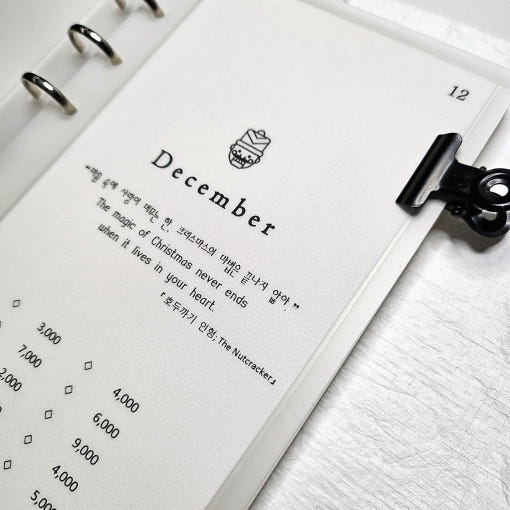 12
December
"마음 속에 사랑이 머무는 한, 크리스마스의 마법은 끝나지 않아."
The magic of Christmas never ends
when it lives in your heart.
『호두까기 인형, The Nutcracker』
◇ 3,000 ◇ 4,000
7,000 ◇ 6,000
2,000 ◇ 9,000
◇ 4,000
◇ 5,000